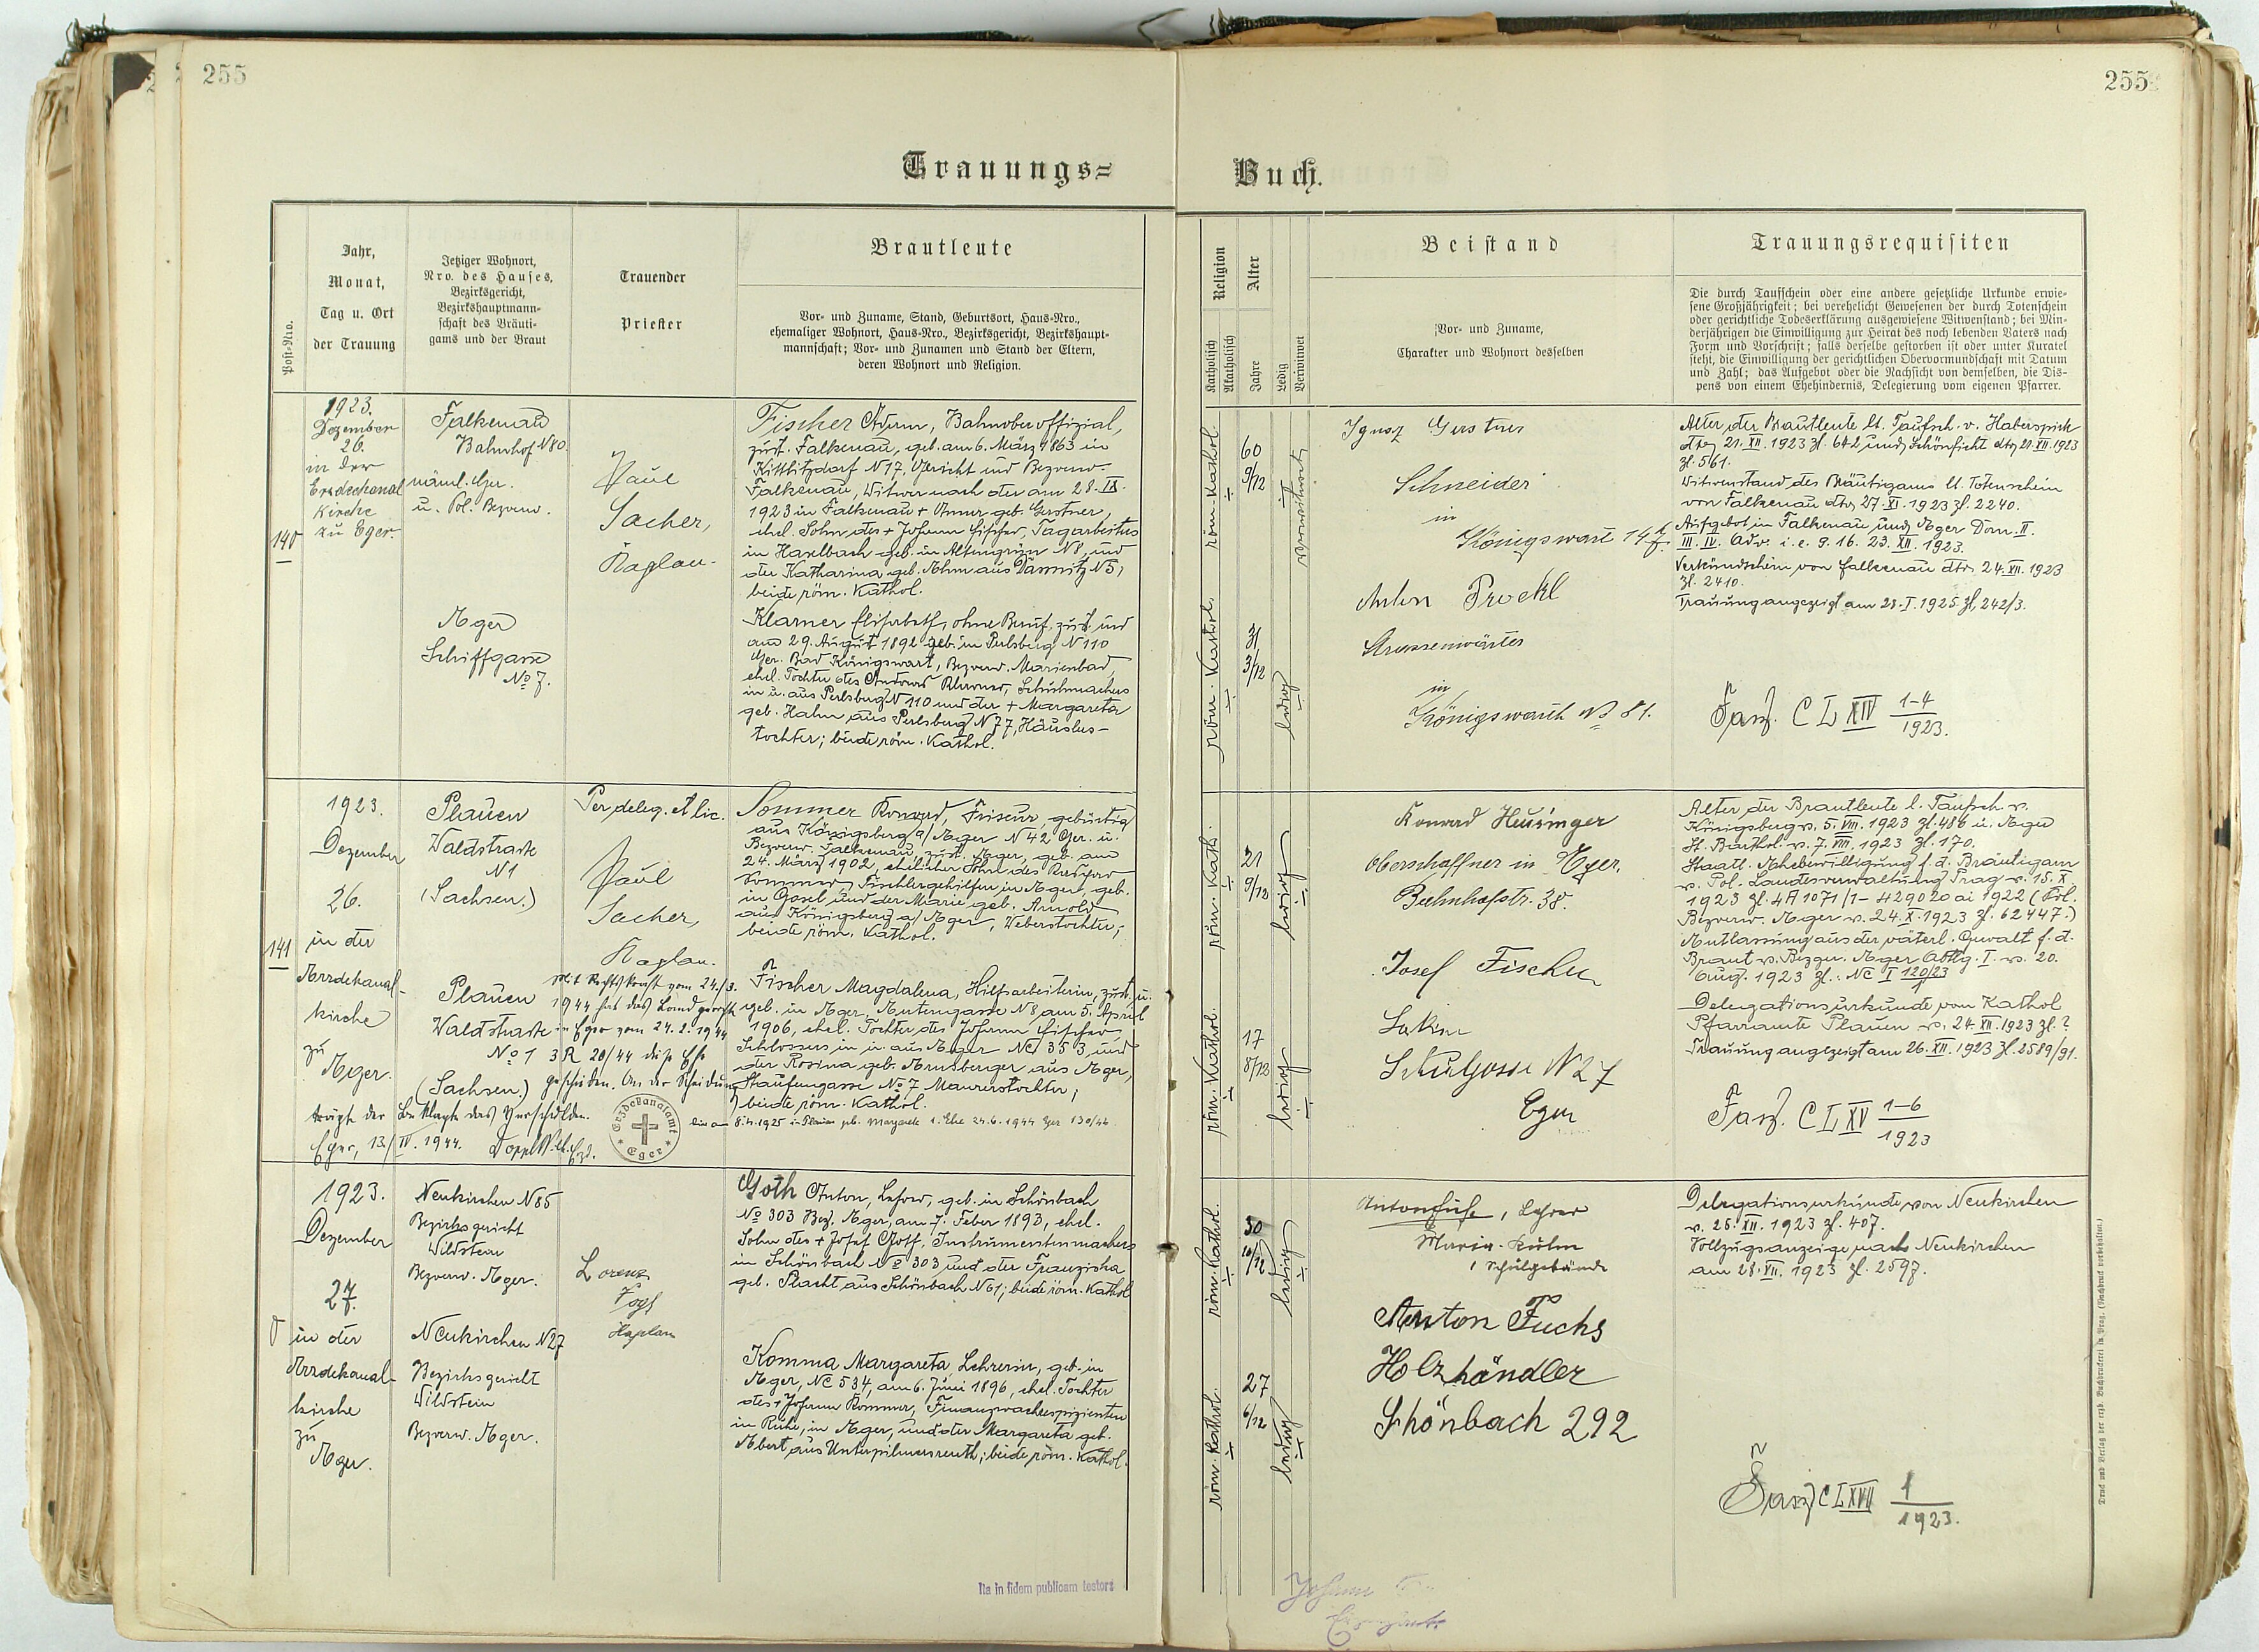 255
255
Trauungs=
Buch.
Post=Nro.
Jahr,
Monat,
Tag u. Ort
der Trauung
Jetziger Wohnort,
Nro. des Hauses,
Bezirksgericht,
Bezirkshauptmann-
schaft des Bräuti-
gams und der Braut
Trauender
Priester
Brautleute
Vor- und Zuname, Stand, Geburtsort, Haus-Nro.,
ehemaliger Wohnort, Haus-Nro., Bezirksgericht, Bezirkshaupt-
mannschaft; Vor- und Zunamen und Stand der Eltern,
deren Wohnort und Religion.
Religion
Katholisch
Akatholisch
Alter
Jahre
Ledig
Verwitwet
Beistand
Vor- und Zuname,
Charakter und Wohnort desselben
Trauungsrequisiten
Die durch Taufschein oder eine andere gesetzliche Urkunde erwie-
sene Großjährigkeit; bei verehelicht Gewesenen der durch Totenschein
oder gerichtliche Todeserklärung ausgewiesene Witwenstand; bei Min-
derjährigen die Einwilligung zur Heirat des noch lebenden Vaters nach
Form und Vorschrift; falls derselbe gestorben ist oder unter Kuratel
steht, die Einwilligung der gerichtlichen Obervormundschaft mit Datum
und Zahl; das Aufgebot oder die Nachsicht von demselben, die Dis-
pens von einem Ehehindernis, Delegierung vom eigenen Pfarrer.
140
1923.
Dezember
26.
in der
Erzdechanal
Kirche
zu Eger.
Falkenau
Bahnhof N 80.
näml. Ger.
u. Pol. Bezverw.
Eger
Schiffgasse
No 7.
Paul
Sacher,
Kaplan.
Fischer Adam, Bahnoberoffizial,
zust. Falkenau, geb. am 6. März 1863 in
Kittlitzdorf N 17, Gericht und Bezverw.
Falkenau, Witwer nach der am 28. IX.
1923 in Falkenau + Anna geb. Gerstner,
ehel. Sohn des + Johann Fischer, Tagarbeiters
in Haselbach geb. in Altengrün N 8, und
der Katharina geb. Ahm aus Dassnitz N 5,
beide röm. Kathol.
Klarner Elisabeth, ohne Beruf, zust. und
am 29. August 1892 geb. in Perlsberg N 110
Ger. Bad Königswart, Bezverw. Marienbad,
ehel. Tochter des Andreas Klarner, Schuhmachers
in u. aus Perlsberg N 110 und der + Margareta
geb. Hahn aus Perlsberg N 77, Häuslers-
tochter; beide röm. Kathol.
röm. Kathol.
60
9/12
verwitwet
röm. Kathol.
31
3/12
ledig
Ignaz Gerstner
Schneider
in
Königswart 147.
Anton Prockl
Strassenwärter
in
Königswarth No 81.
Alter der Brautleute lt. Taufsch. v. Haberspirk
dto 21. XII. 1923 Zl. 642 und Schönficht dto 21. XII. 1923
Zl. 561.
Witwenstand des Bräutigams lt. Totenschein
von Falkenau dto 27. XI. 1923 Zl. 2240.
Aufgebot in Falkenau und Eger Dom. II.
III. IV. Adv. i. e. 9. 16. 23. XII. 1923.
Verkündschein von Falkenau dto 24. XII. 1923
Zl. 2410.
Trauung angezeigt am 28. I. 1925. Zl. 242/3.
Fasz. CLXIV 1-4
1923.
141
1923.
Dezember
26.
in der
Erzdekanal-
kirche
zu
Eger.
Plauen
Waldstrasse
N 1
(Sachsen.)
Plauen
Waldstrasse
No 1
(Sachsen.)
Per deleg. et lic.
Paul
Sacher,
Kaplan.
Sommer Konrad, Friseur, gebürtig
aus Königsberg a/Eger N 42 Ger. u.
Bezverw. Falkenau, zust. Eger, geb. am
24. März 1902, ehelicher Sohn des
Sommer, Tischlergehilfen in Eger, geb.
in Gosel und der Marie geb. Arnold
aus Königsberg a/Eger, Weberstochter;
beide röm. Kathol.
Fischer Magdalena, Hilfsarbeiterin, zust. u.
geb. in Eger, Rutengasse N 8 am 5. April
1906, ehel. Tochter des Johann Fischer
Schlossers in u. aus Eger Nc 353, und
der Rosina geb. Arnsberger aus Eger,
Staufengasse No 7 Maurerstochter;
beide röm. Kathol.
Mit Rechtskraft vom 24./3.
1944 hat das Landgericht
in Eger vom 24. 2. 1944
3 R 20/44 diese Ehe
geschieden. An der Scheidung
trägt der Beklagte das Verschulden.
Eger, 13./IV. 1944.
Erzdekanalamt
Eger
röm. Kath.
21
9/12
ledig
röm. Kathol.
17
8/12
ledig
Konrad Heusinger
Oberschaffner in Eger.
Bahnhofstr. 38.
Josef Fischer
Schulgasse N 27
Eger
Alter der Brautleute l. Taufsch. v.
Königsberg v. 5. VIII. 1923 Zl. 486 u. Eger
St. Barthol. v. 7. VIII. 1923 Zl. 170.
Staatl. Ehebewilligung f. d. Bräutigam
v. Pol. Landesverwaltung Prag v. 15. X.
1923 Zl. 4A 1071/1- 429020 ai 1922 (Pol.
Bezverw. Eger v. 24. X. 1923 Zl. 62447.)
Entlassung aus der väterl. Gewalt f. d.
Braut v. Bezger. Eger Abtlg. I. v. 20.
Aug. 1923 Zl.: Nc I 120/23
Delegationsurkunde vom Kathol
Pfarramte Plauen v. 24. XII. 1923 Zl. ?
Trauung angezeigt am 26. XII. 1923 Zl. 2589/91.
Fasz. CLXV 1-6
1923
1923.
Dezember
27.
in der
Erzdekanal-
kirche
zu
Eger.
Neukirchen N 85
Bezirksgericht
Wildstein
Bezverw. Eger.
Neukirchen N 27
Bezirksgericht
Wildstein
Bezverw. Eger.
Lorenz
Vogl
Kaplan
Goth Anton, Lehrer, geb. in Schönbach
No 303 Bez. Eger, am 7. Feber 1893, ehel.
Sohn des + Josef Goth, Instrumentenmachers
in Schönbach No 303 und der Franziska
geb. Placht aus Schönbach N 61; beide röm. Kathol
Komma Margareta Lehrerin, geb. in
Eger, Nc 534, am 6. Juni 1896, ehel. Tochter
des + Johann Komma, Finanzwachrespizienten
in Ruhe, in Eger, und der Margareta geb.
Ebert aus Unterpilmersreuth; beide röm. Kathol.
röm. Kathol.
30
10/12
ledig
röm. Kathol.
27
6/12
ledig
Anton Fuchs, Lehrer
Maria-Kulm
Schulgebäude
Anton Fuchs
Holzhändler
Schönbach 292
Delegationsurkunde von Neukirchen
v. 26. XII. 1923 Zl. 407.
Vollzugsanzeige nach Neukirchen
am 28. XII. 1923 Zl. 2597.
Fasz CLXVII 1
1923.
Ita in fidem publicam testors
Johann